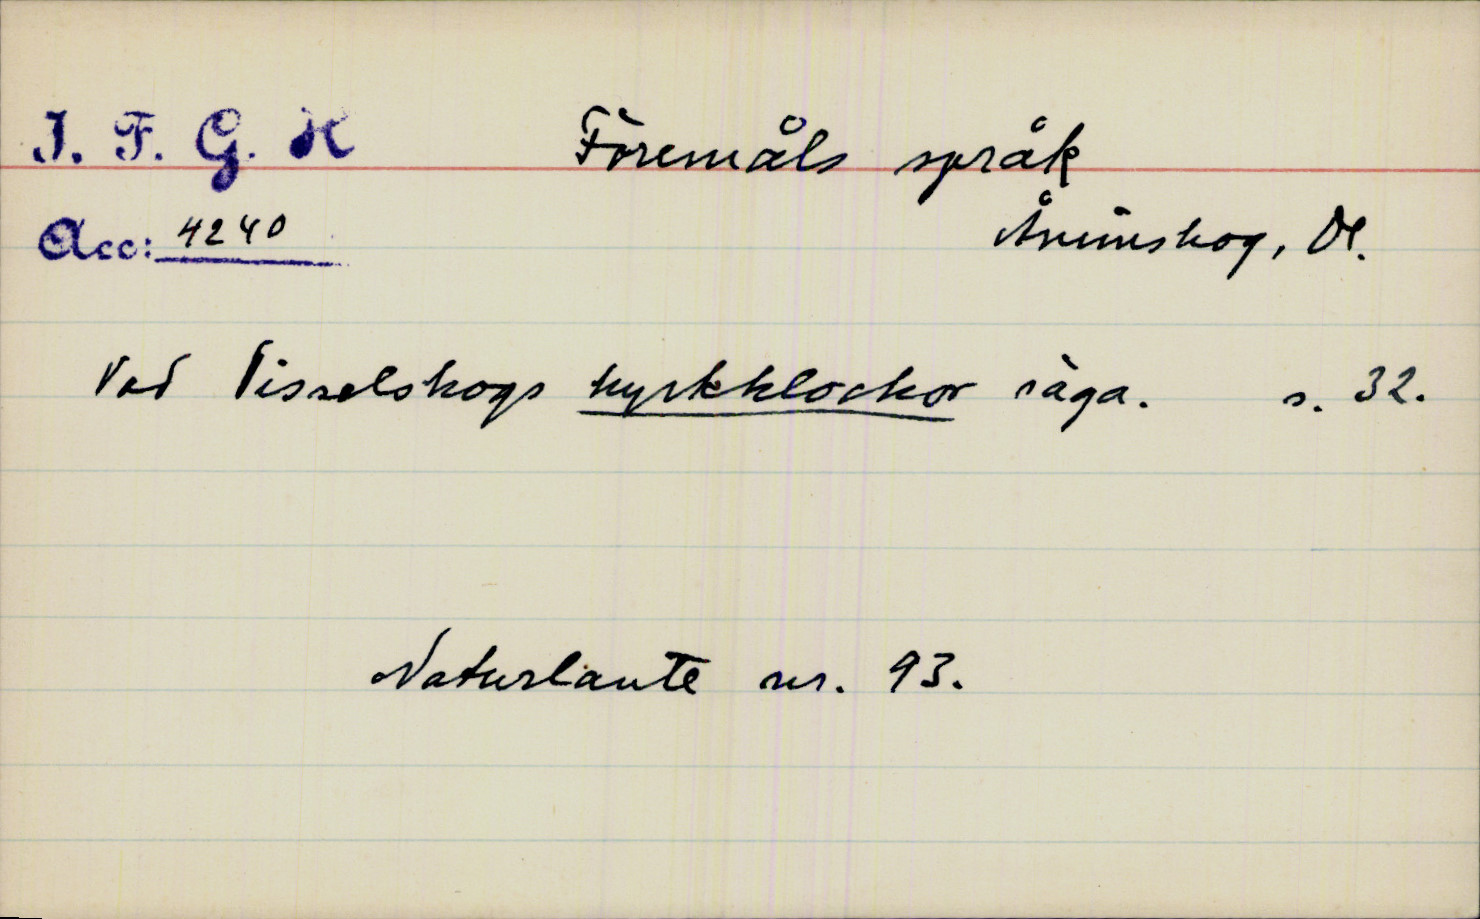 I. F. G. H
Föremåls språk
Acc: 4240
Ånimskog, Dl.
Vad Tisselskogs kyrkklockor säga. s. 32.
Naturlaute nr. 93.